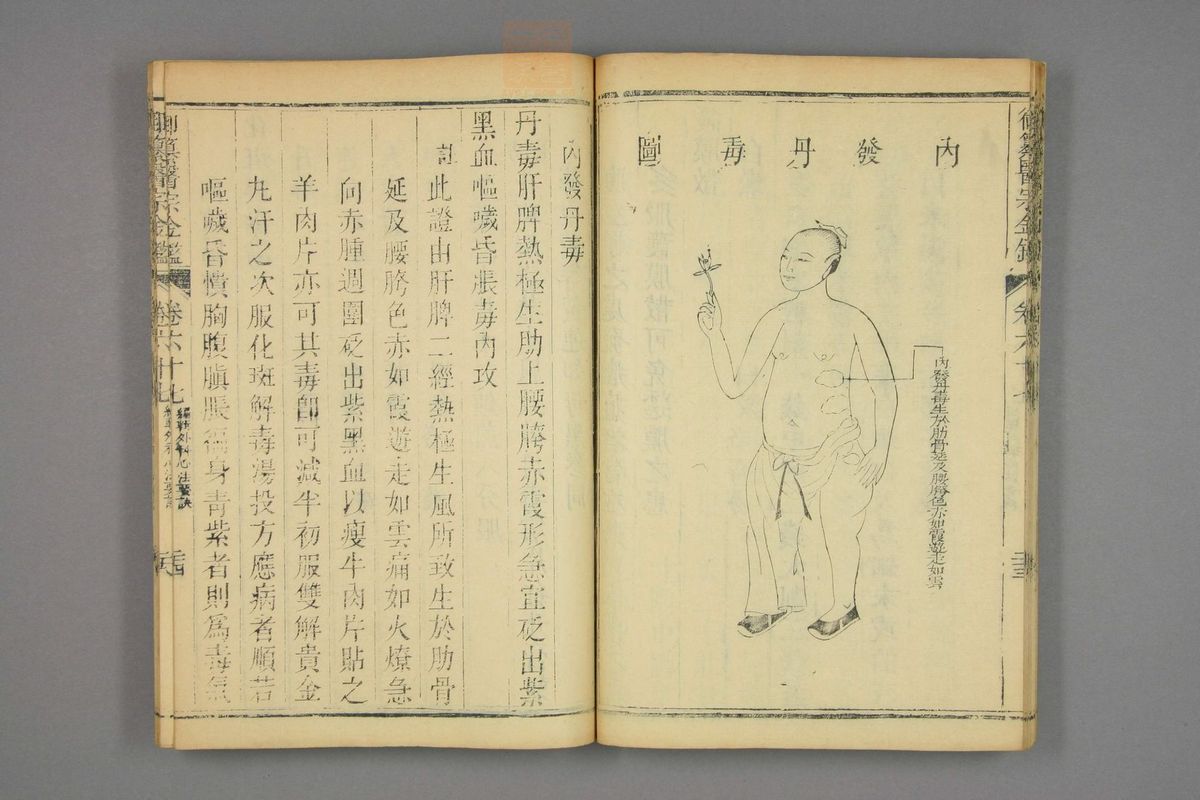 內發丹毒圖
內發丹毒生於肋骨延及腰胯色赤如霞遊走如雲
內發丹毒
丹毒肝脾熱極生肋上腰胯赤霞形急宜砭出紫
黑血嘔噦昏脹毒內攻
註此證由肝脾二經熱極生風所致生於肋骨
延及腰胯色赤如霞遊走如雲痛如火燎急
向赤腫週圍砭出紫黑血以瘦牛肉片貼之
羊肉片亦可其毒卽可減半初服雙解貴金
丸汗之次服化斑解毒湯投方應病者順若
嘔噦昏憒胸腹䐜脹徧身青紫者則爲毒氣
御纂醫宗金鑑 卷六十七 編輯外科心法要訣